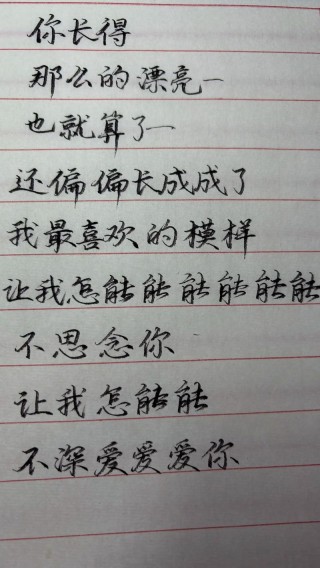 你长得
那么的漂亮一
也就算了一
还偏偏长成成了
我最喜欢的模样
让我怎能能能能能能
不思念你
让我怎能能
不深爱爱爱你